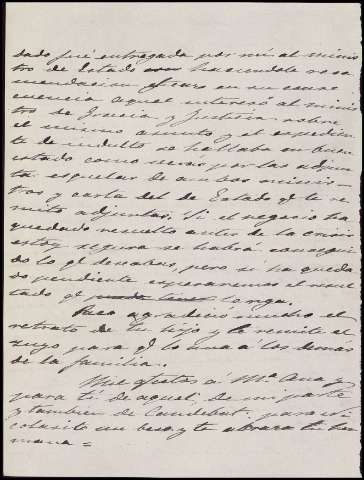 dado fué entregada por mí al minis
tro de Estado haciendole reco
mendacion en su conse
cuencia aquel interesó al minis
tro de Gracia y Justicia sobre
el mismo asunto y el expedien
te de indulto se hallaba en buen
estado como verás por las adjun
tas esquelas de ambos minis
tros y carta del de Estado q.e te re
mito adjuntas. Si el negocio ha
quedado resuelto antes de la crisis
estoy segura se habrá consegui
do lo q.e deseabas, pero si ha queda
do pendiente esperaremos el resul
tado q.e tenga.
Paca agradeció mucho el
retrato de tu hijo y te remite el
suyo para q.e lo unas á los demás
de la familia.
Mil afectos á M.a Ana y
para ti de aquel de mi parte
y tambien de Candebat para
un beso y te abraza tu her
mana =